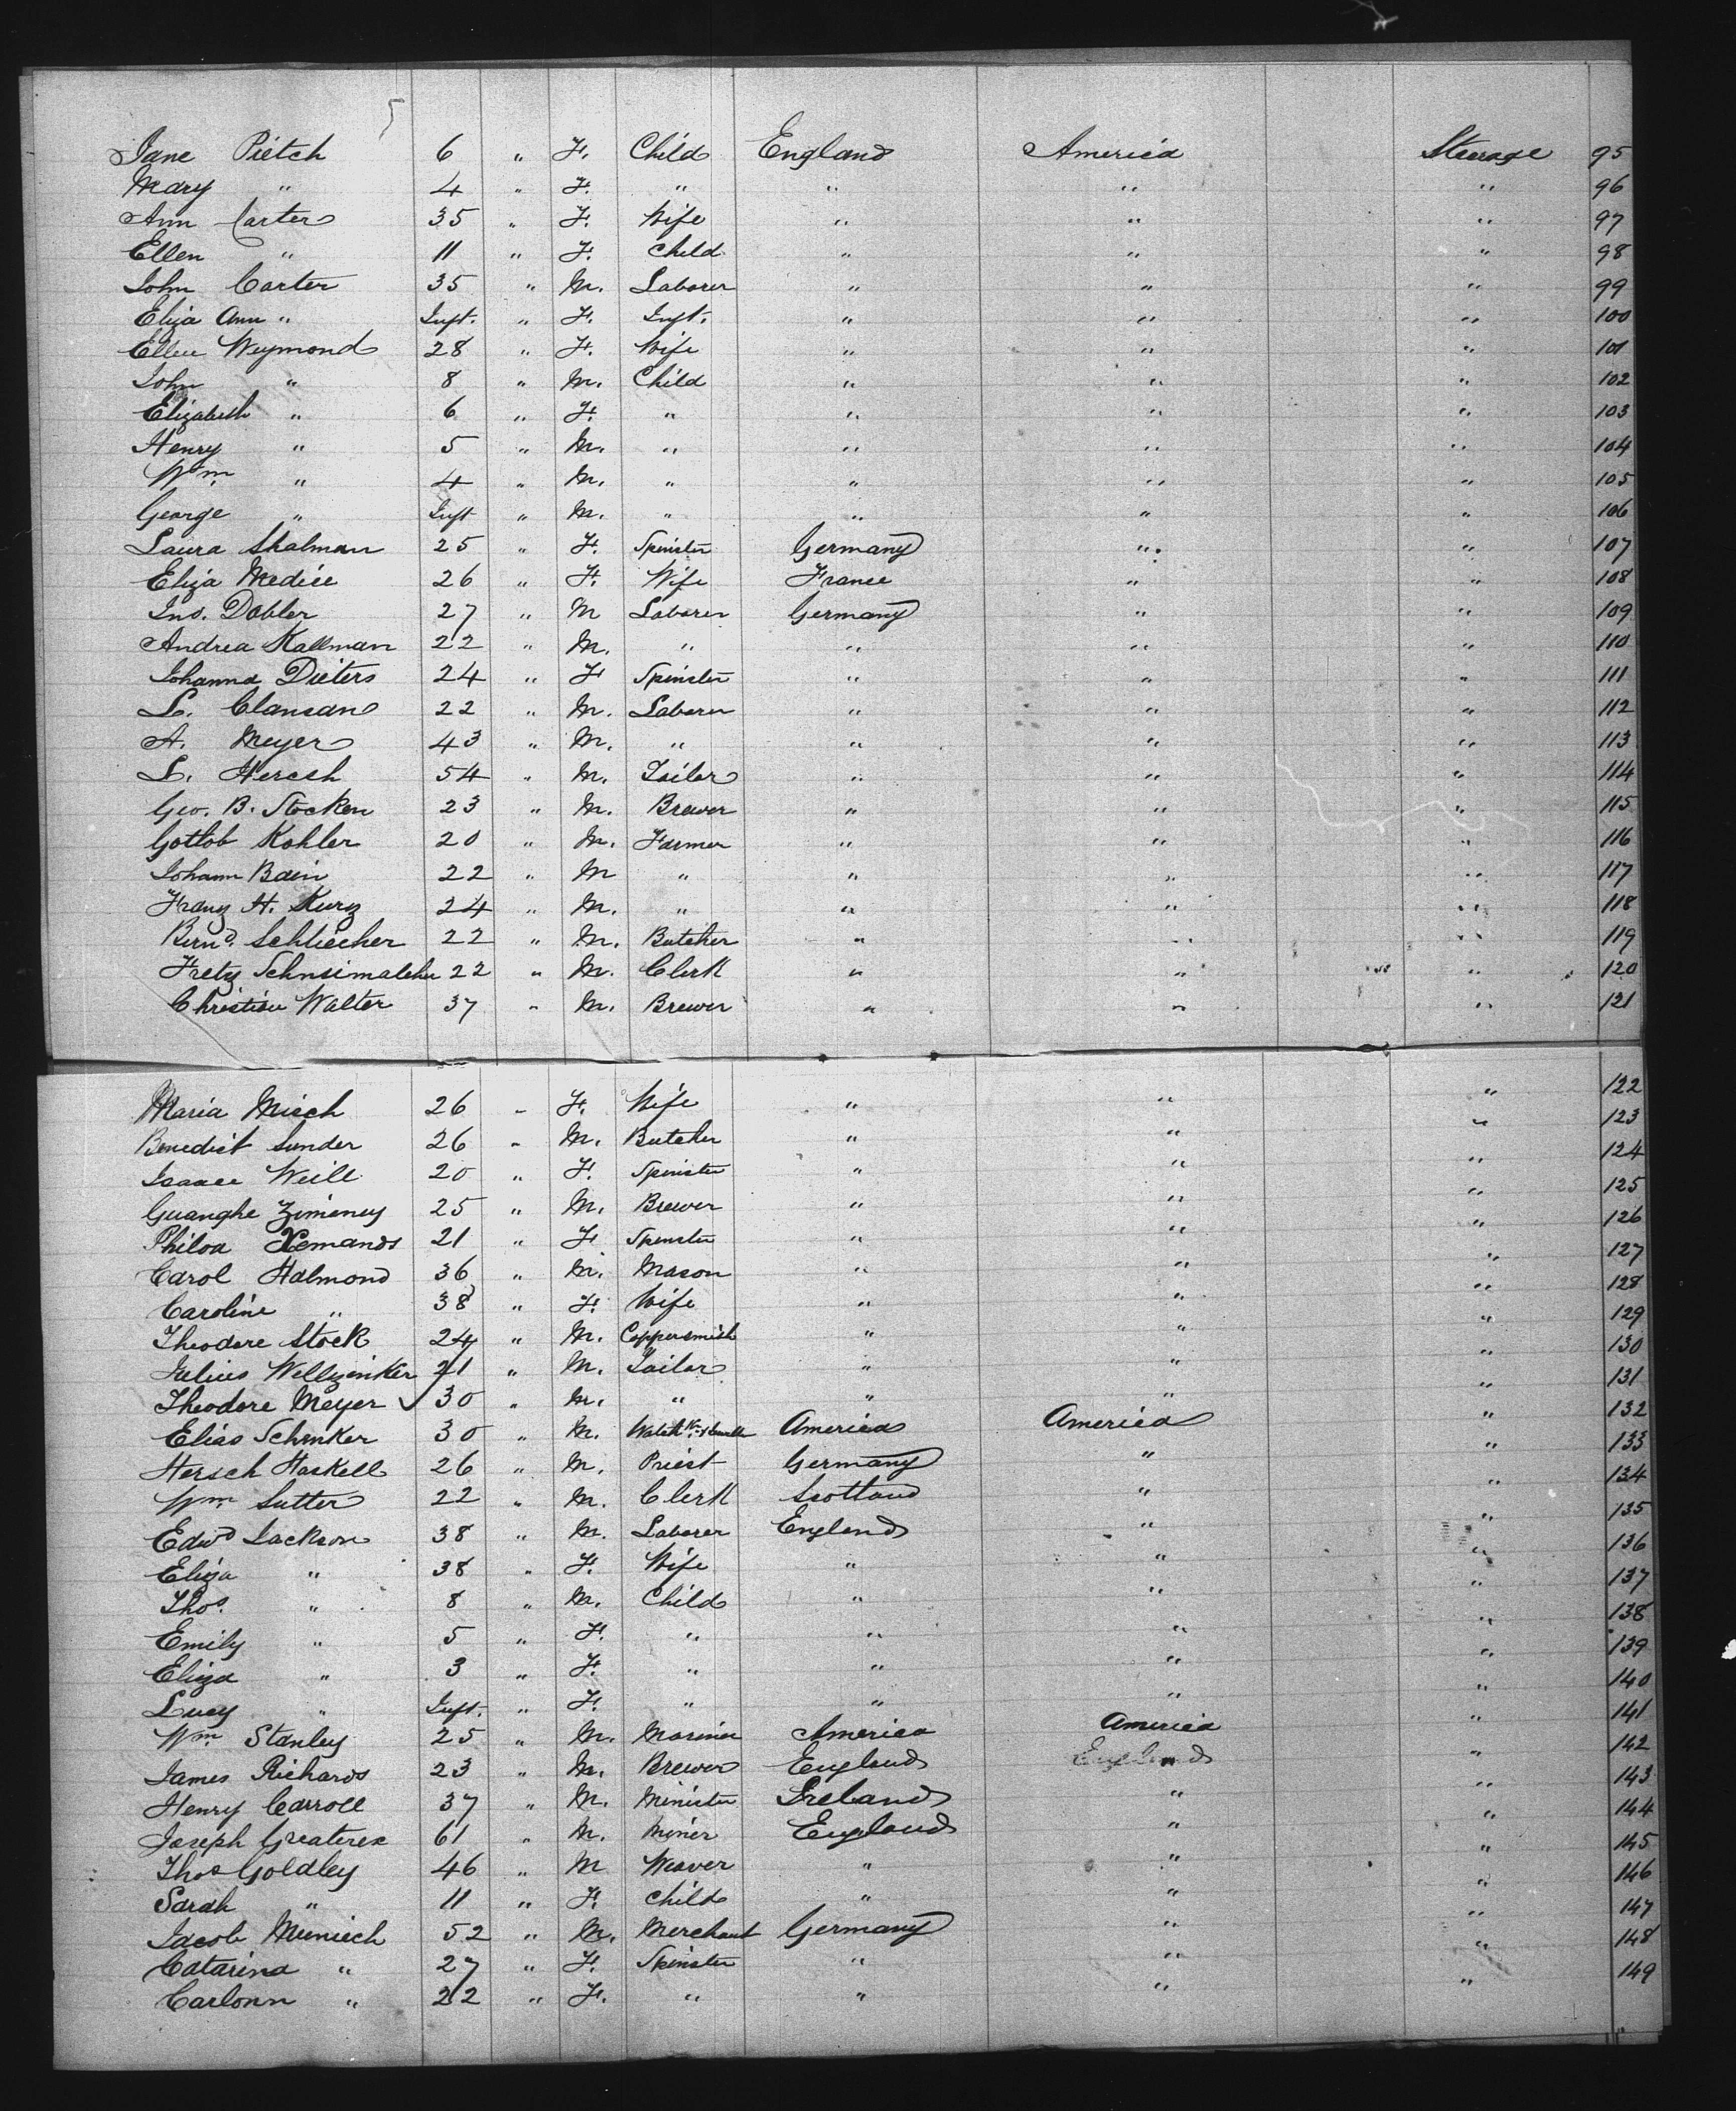 Jane Pietch 6 " F. Child England America Steerage 95
Mary " 4 " F. " " " " 96
Ann Carter 35 " F. Wife " " " 97
Ellen " 11 " F. Child " " " 98
John Carter 35 " M. Laborer " " " 99
Eliza Ann " Inft. " F. Inft. " " " 100
Ellen Weymond 28 " F. Wife " " " 101
John " 8 " M. Child " " " 102
Elizabeth " 6 " F. " " " " 103
Henry " 5 " M. " " " " 104
Wm. " 4 " M. " " " " 105
George " Inft " M. " " " " 106
Laura Shalman 25 " F. Spinster Germany " " 107
Eliza Medice 26 " F. Wife France " " 108
Jno. Dobler 27 " M Laborer Germany " " 109
Andrea Kallman 22 " M. " " " " 110
Johanna Dieters 24 " F Spinster " " " 111
L. Clansan 22 " M. Laborer " " " 112
A. Meyer 43 " M. " " " " 113
L. Heresh 54 " M. Tailor " " " 114
Geo. B. Stocken 23 " M. Brewer " " " 115
Gottob Kohler 20 " M. Farmer " " " 116
Johann Bain 22 " M " " " " 117
Franz H. Kurz 24 " M. " " " " 118
Bernd. Schliecher 22 " M. Butcher " " " 119
Fretz 22 " M. Clerk " " " 120
Christian Walter 37 " M. Brewer " " " 121
Maria Misch 26 " F. Wife " " " 122
Benedict Sunder 26 " M. Butcher " " " 123
Weill 20 " F. Spinster " " " 124
Guanghe Zimeney 25 " M. Brewer " " " 125
Philoa 21 " F Spinster " " " 126
Carol Halmond 36 " M. Mason " " " 127
Caroline " 38 " F. Wife " " " 128
Theodore Stock 24 " M. Coppersmith " " " 129
Julius Wellzinker 21 " M. Tailor " " " 130
Theodore Meyer 30 " M. " " " " 131
Elias Schenker 30 " M. America America " 132
Hersch Haskell 26 " M. Priest Germany " " 133
Wm. Sutter 22 " M. Clerk Scotland " " 134
Edwd Jackson 38 " M. Laborer England " " 135
Eliza " 38 " F. Wife " " " 136
Thos. " 8 " M. Child " " " 137
Emily " 5 " F. " " " " 138
Eliza " 3 " F. " " " " 139
Lucy " Inft. " F. " " " " 140
Wm. Stanley 25 " M. Mariner America America " 141
James Richards 23 " M. Brewer England England " 142
Henry Carroll 37 " M. Minister Ireland " " 143
Joseph Greaterex 61 " M. Miner England " " 144
Thos Goldley 46 " M Weaver " " " 145
Sarah " 11 " F. Child " " " 146
Jacob Muniech 52 " M. Merchant Germany " " 147
Catarina " 27 " F. Spinster " " " 148
Carlonn " 22 " F. " " " " 149